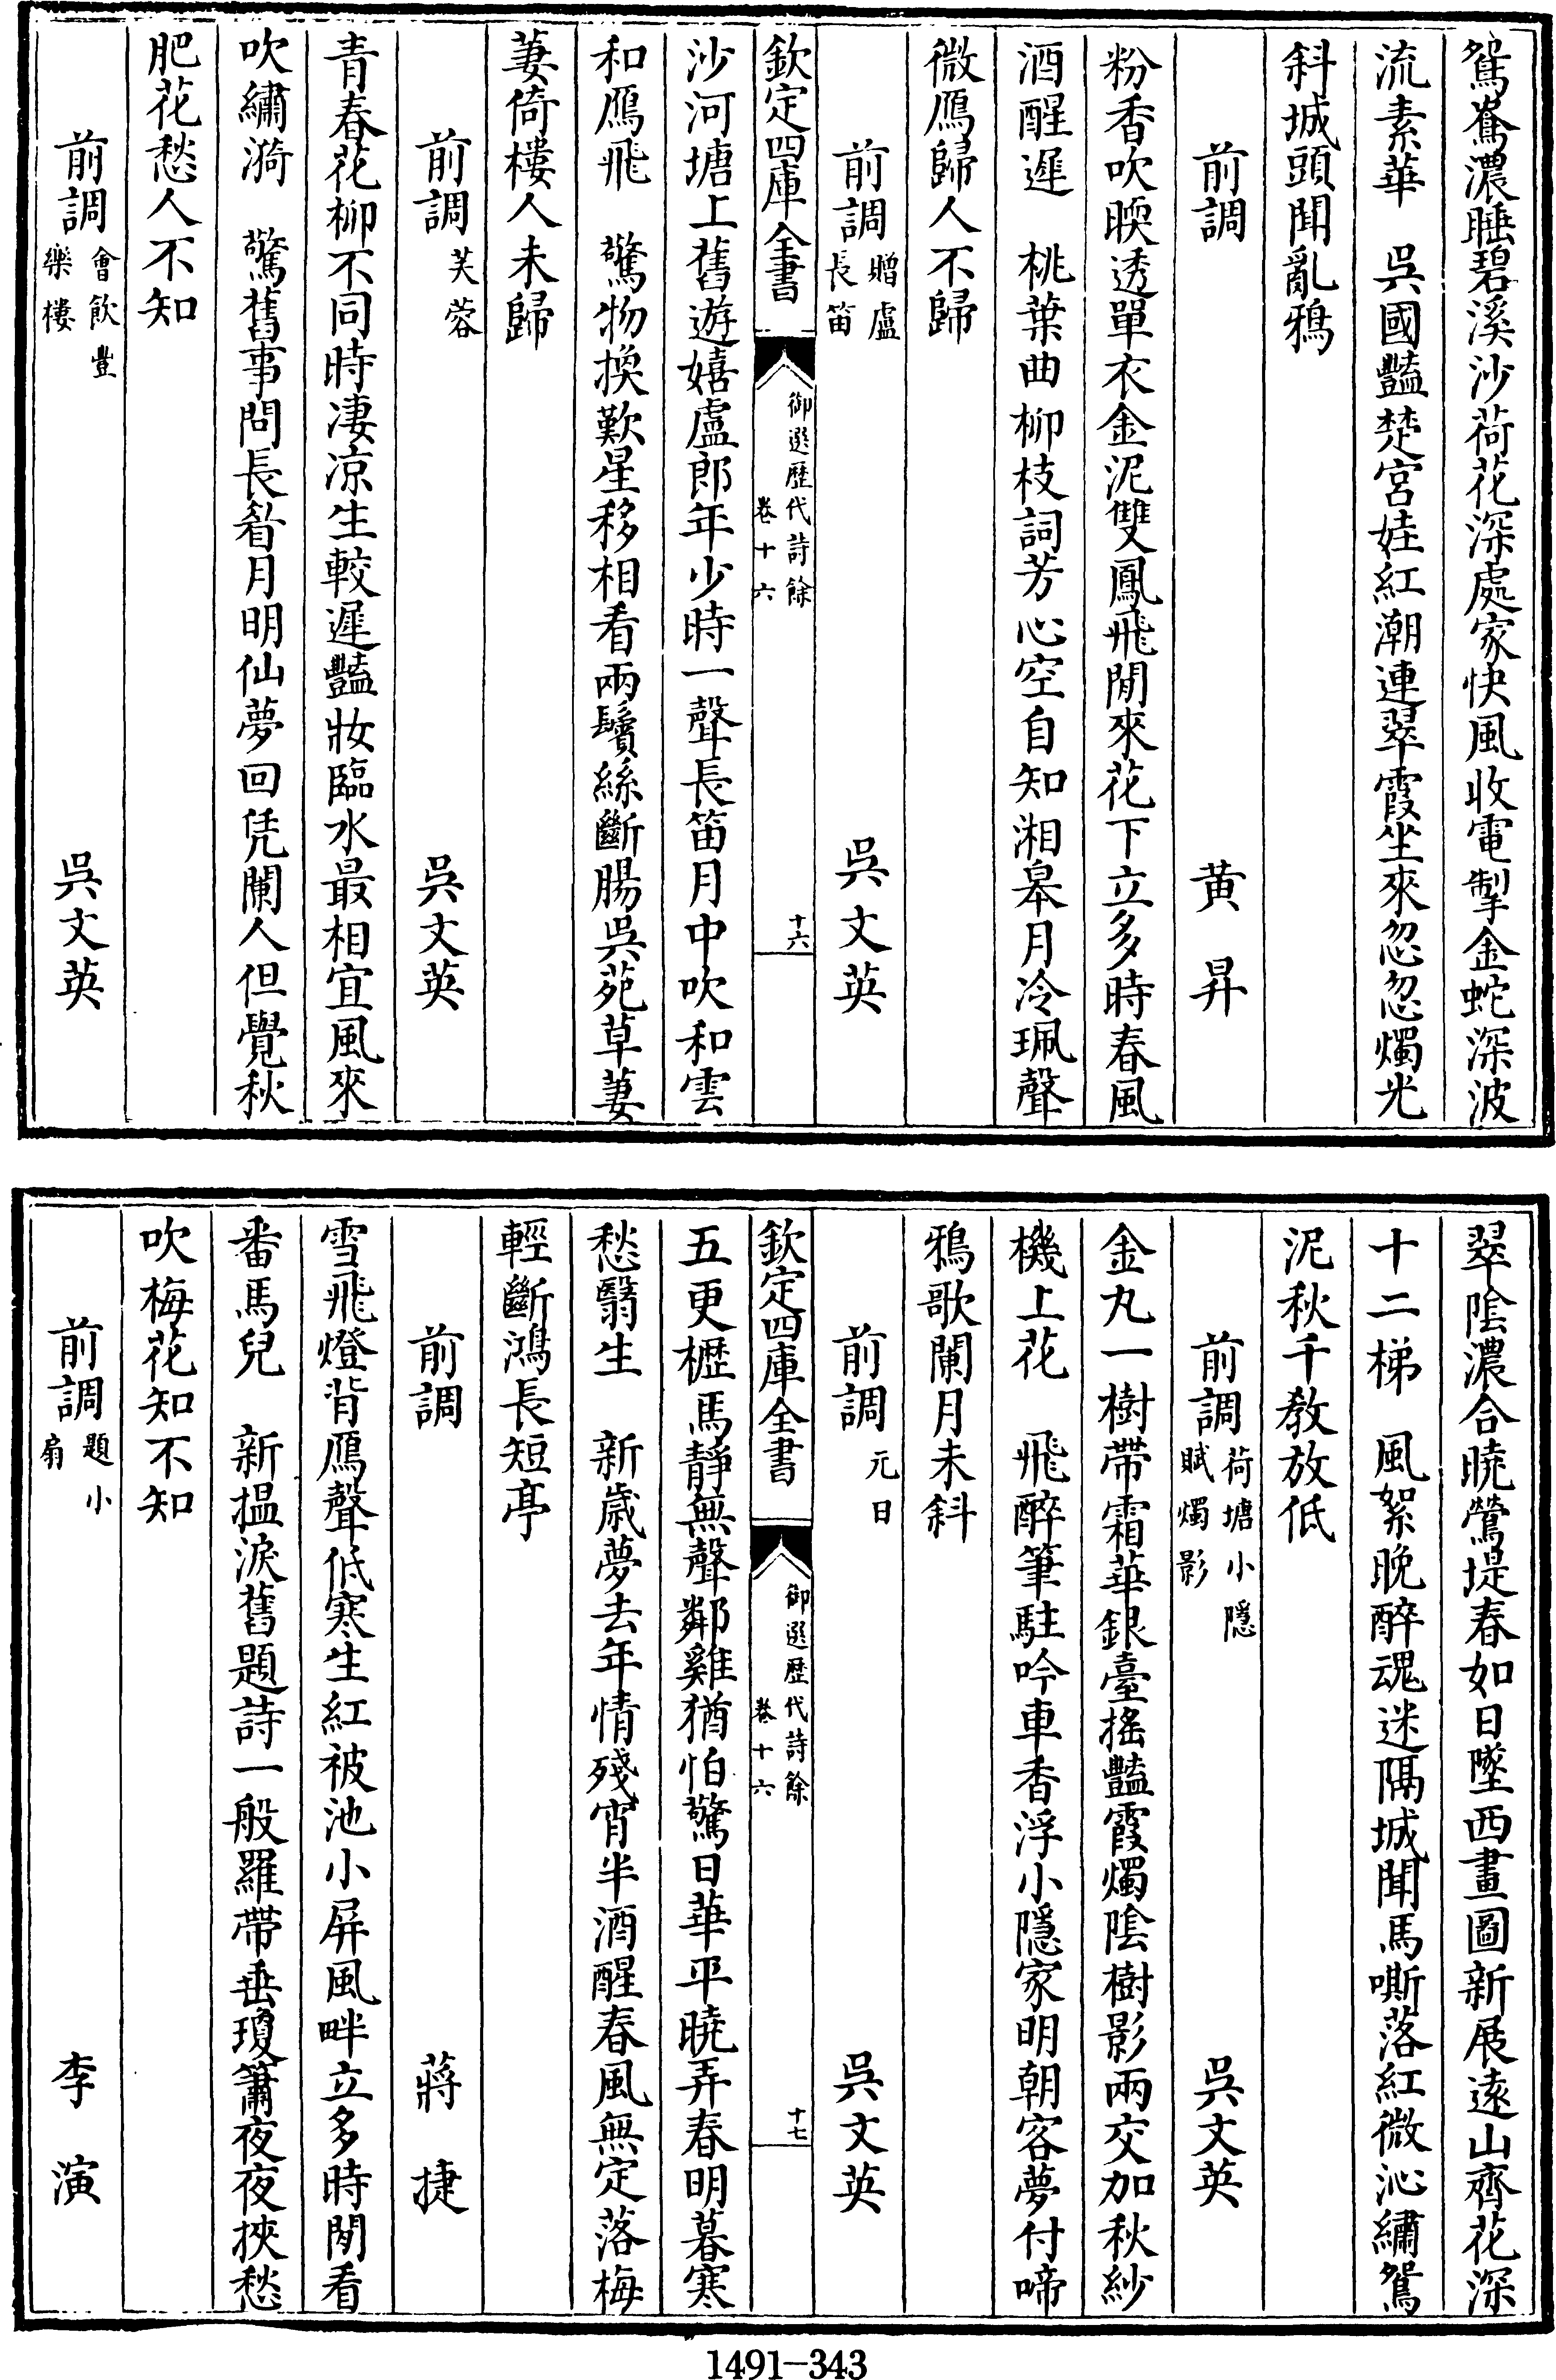 鴛鴦濃睡碧溪沙荷花深處家快風收電掣金蛇深波
流素華　吳國豔楚宮娃紅潮連翠霞坐來忽忽燭光
斜城頭聞亂鴉
前調　黄昇
粉香吹暖透單衣金泥雙鳳飛閒來花下立多時春風
酒醒遲　桃葉曲柳枝詞芳心空自知湘皋月冷珮聲
微鴈歸人不歸
前調贈盧長笛　吳文英
欽定四庫全書　御選歷代詩餘卷十六　十六
沙河塘上舊遊嬉盧郎年少時一聲長笛月中吹和雲
和鴈飛　驚物換歎星移相看兩鬢絲斷腸吳苑草萋
萋倚樓人未歸
前調芙蓉　吳文英
青春花柳不同時凄凉生較遲豔妝臨水最相宜風來
吹繡漪　驚舊事問長眉月明仙夢回凭闌人但覺秋
肥花愁人不知
前調會飲豐樂樓　吳文英
翠陰濃合曉鶯堤春如日墜西畫圖新展遠山齊花深
十二梯　風絮晚醉魂迷隔城聞馬嘶落紅微沁繡鴛
泥秋千教放低
前調荷塘小隱賦燭影　吳文英
金丸一樹帶霜華銀臺搖豔霞燭陰樹影兩交加秋紗
機上花　飛醉筆駐吟車香浮小隱家明朝客夢付啼
鴉歌闌月未斜
前調元日　吳文英
欽定四庫全書　御選歷代詩餘卷十六　十七
五更櫪馬靜無聲鄰雞猶怕驚日華平曉弄春明暮寒
愁翳生　新歲夢去年情殘宵半酒醒春風無定落梅
輕斷鴻長短亭
前調　蔣捷
雪飛燈背鴈聲低寒生紅被池小屏風畔立多時閒看
番馬兒　新搵淚舊題詩一般羅帶垂瓊簫夜夜挾愁
吹梅花知不知
前調題小扇　李演
1491-343